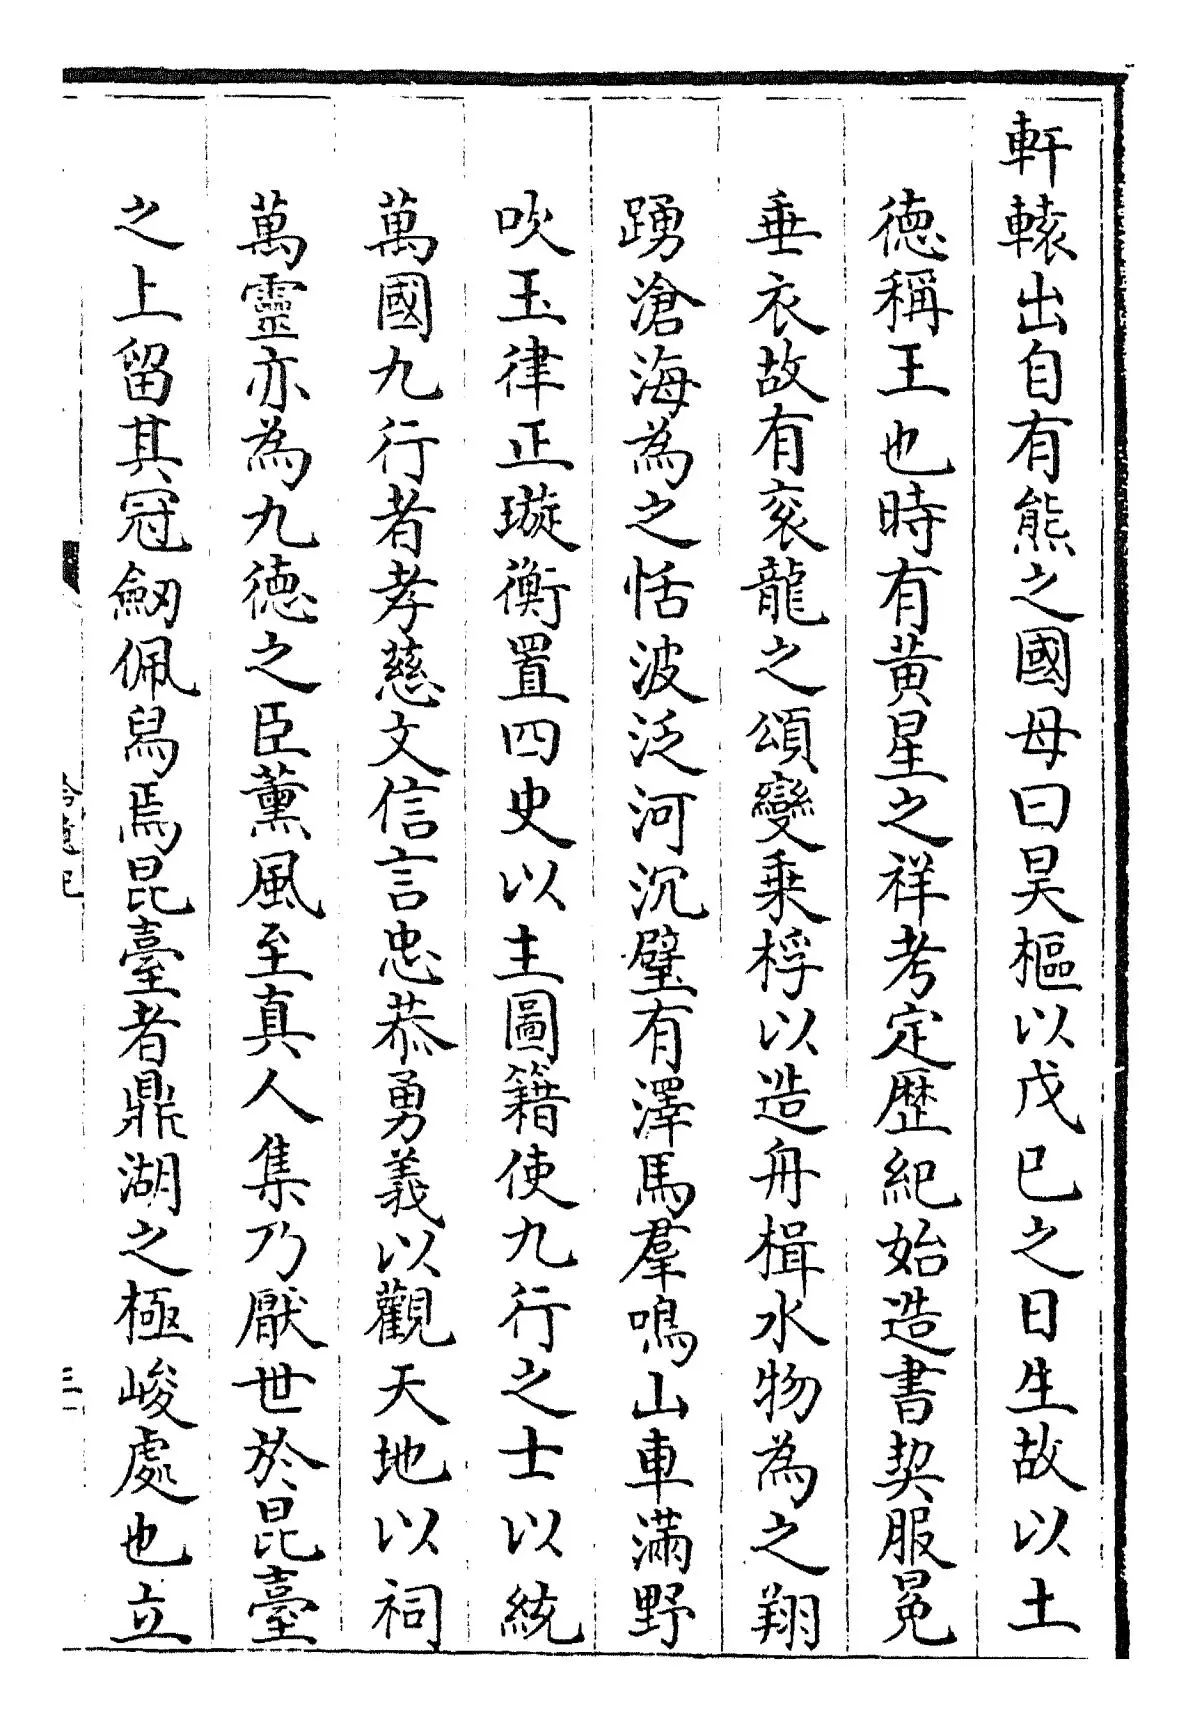 軒轅出自有熊之國母曰昊樞以戊巳之日生故以土
德稱王也時有黃星之祥考定歷紀始造書契服冕
垂衣故有衮龍之頌變乗桴以造舟楫水物為之翔
踴滄海為之恬波泛河沉璧有澤馬羣鳴山車滿野
吹玉律正璇衡置四史以主圖籍使九行之士以統
萬國九行者孝慈文信言忠恭勇義以觀天地以祠
萬靈亦為九德之臣薰風至真人集乃厭世於昆臺
之上留其冠劔佩舄焉昆臺者鼎湖之極峻處也立
拾遺記
三